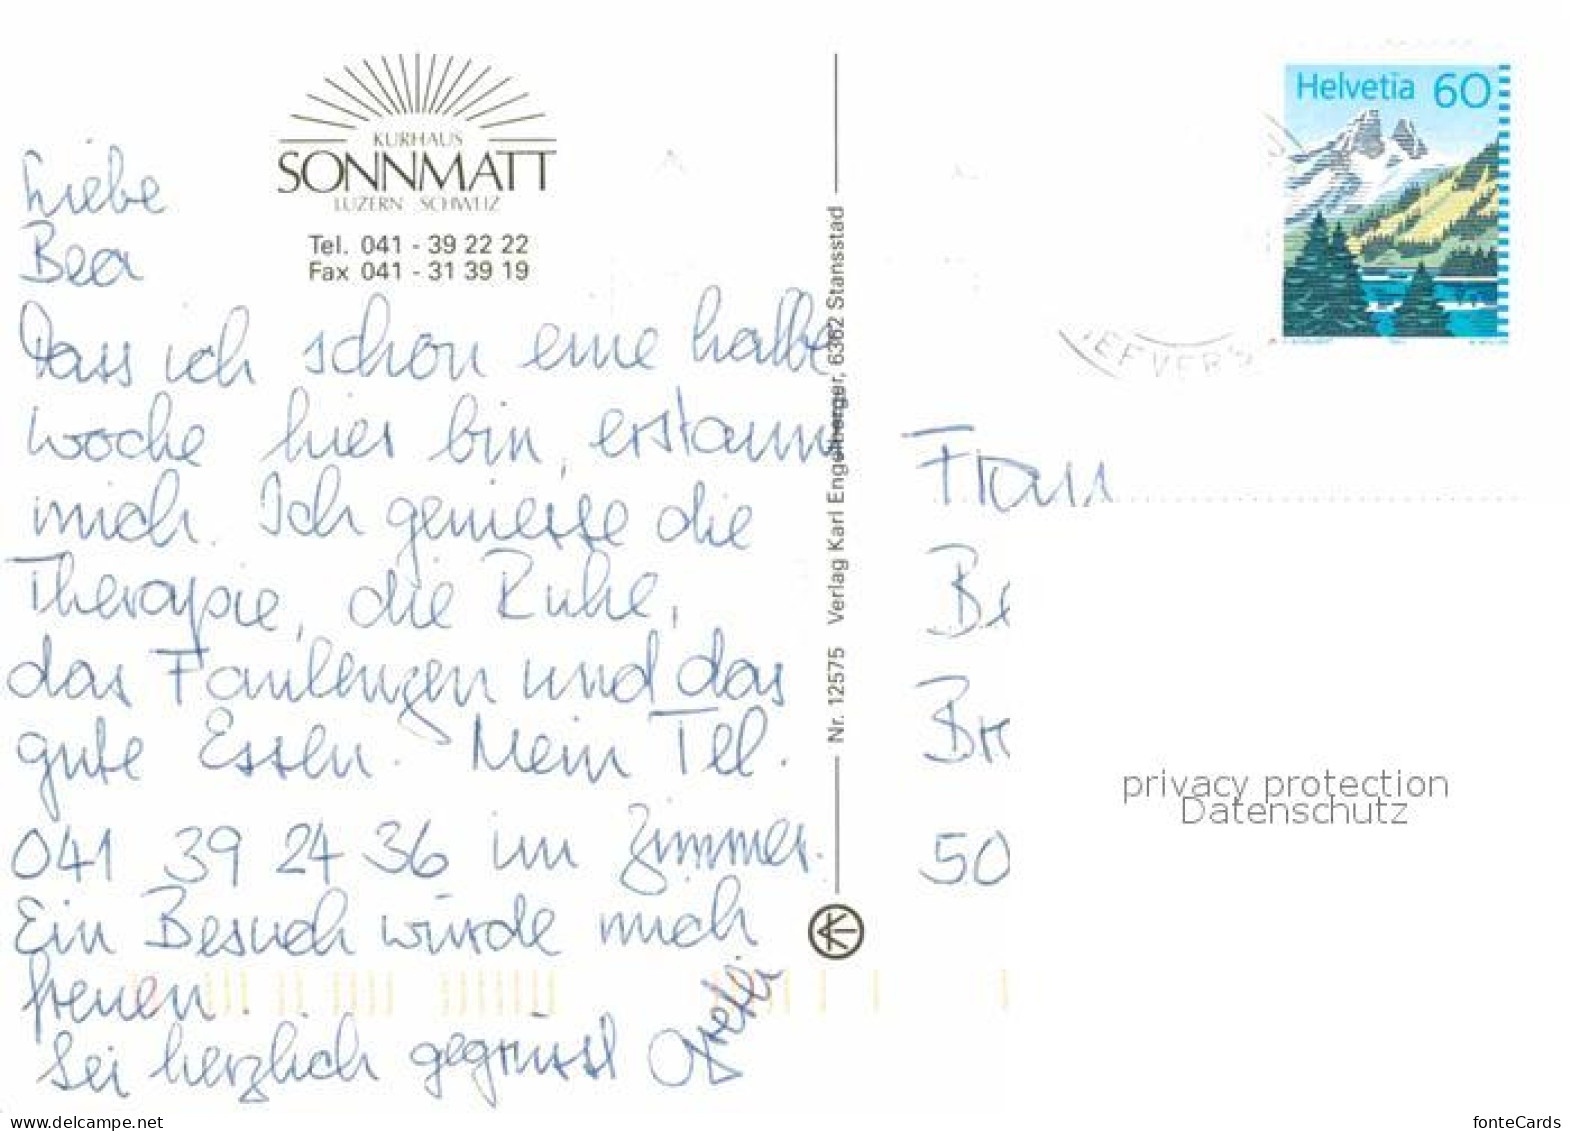 KURHAUS
SONNMATT
LUZERN SCHWEIZ
Tel. 041 - 39 22 22
Fax 041 - 31 39 19
Liebe
Bea
Dass ich schon eine halbe
Woche hier bin, erstaunt
mich. Ich geniesse die
Therapie, die Ruhe,
das Faulenzen und das
gute Essen. Mein Tel.
041 39 24 36 im Zimmer.
Ein Besuch würde mich
freuen.
Sei herzlich gegrüsst
Nr. 12575 Verlag Karl Engelberger, 6362 Stansstad
Helvetia 60
Frau
Be
Br
50
privacy protection
Datenschutz
www.delcampe.net
fonteCards